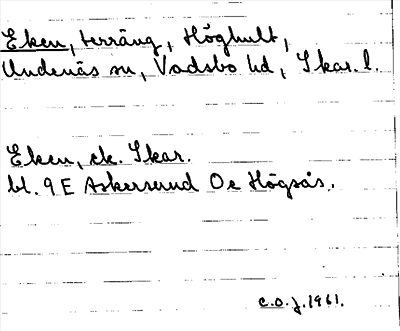 Eken, terräng, Höghult,
Undenäs sn, Vadsbo hd, Skar. l.
Eken, ek. Skar.
bl. 9 E Askersund Oe Högsås.
C.O.J. 1961.